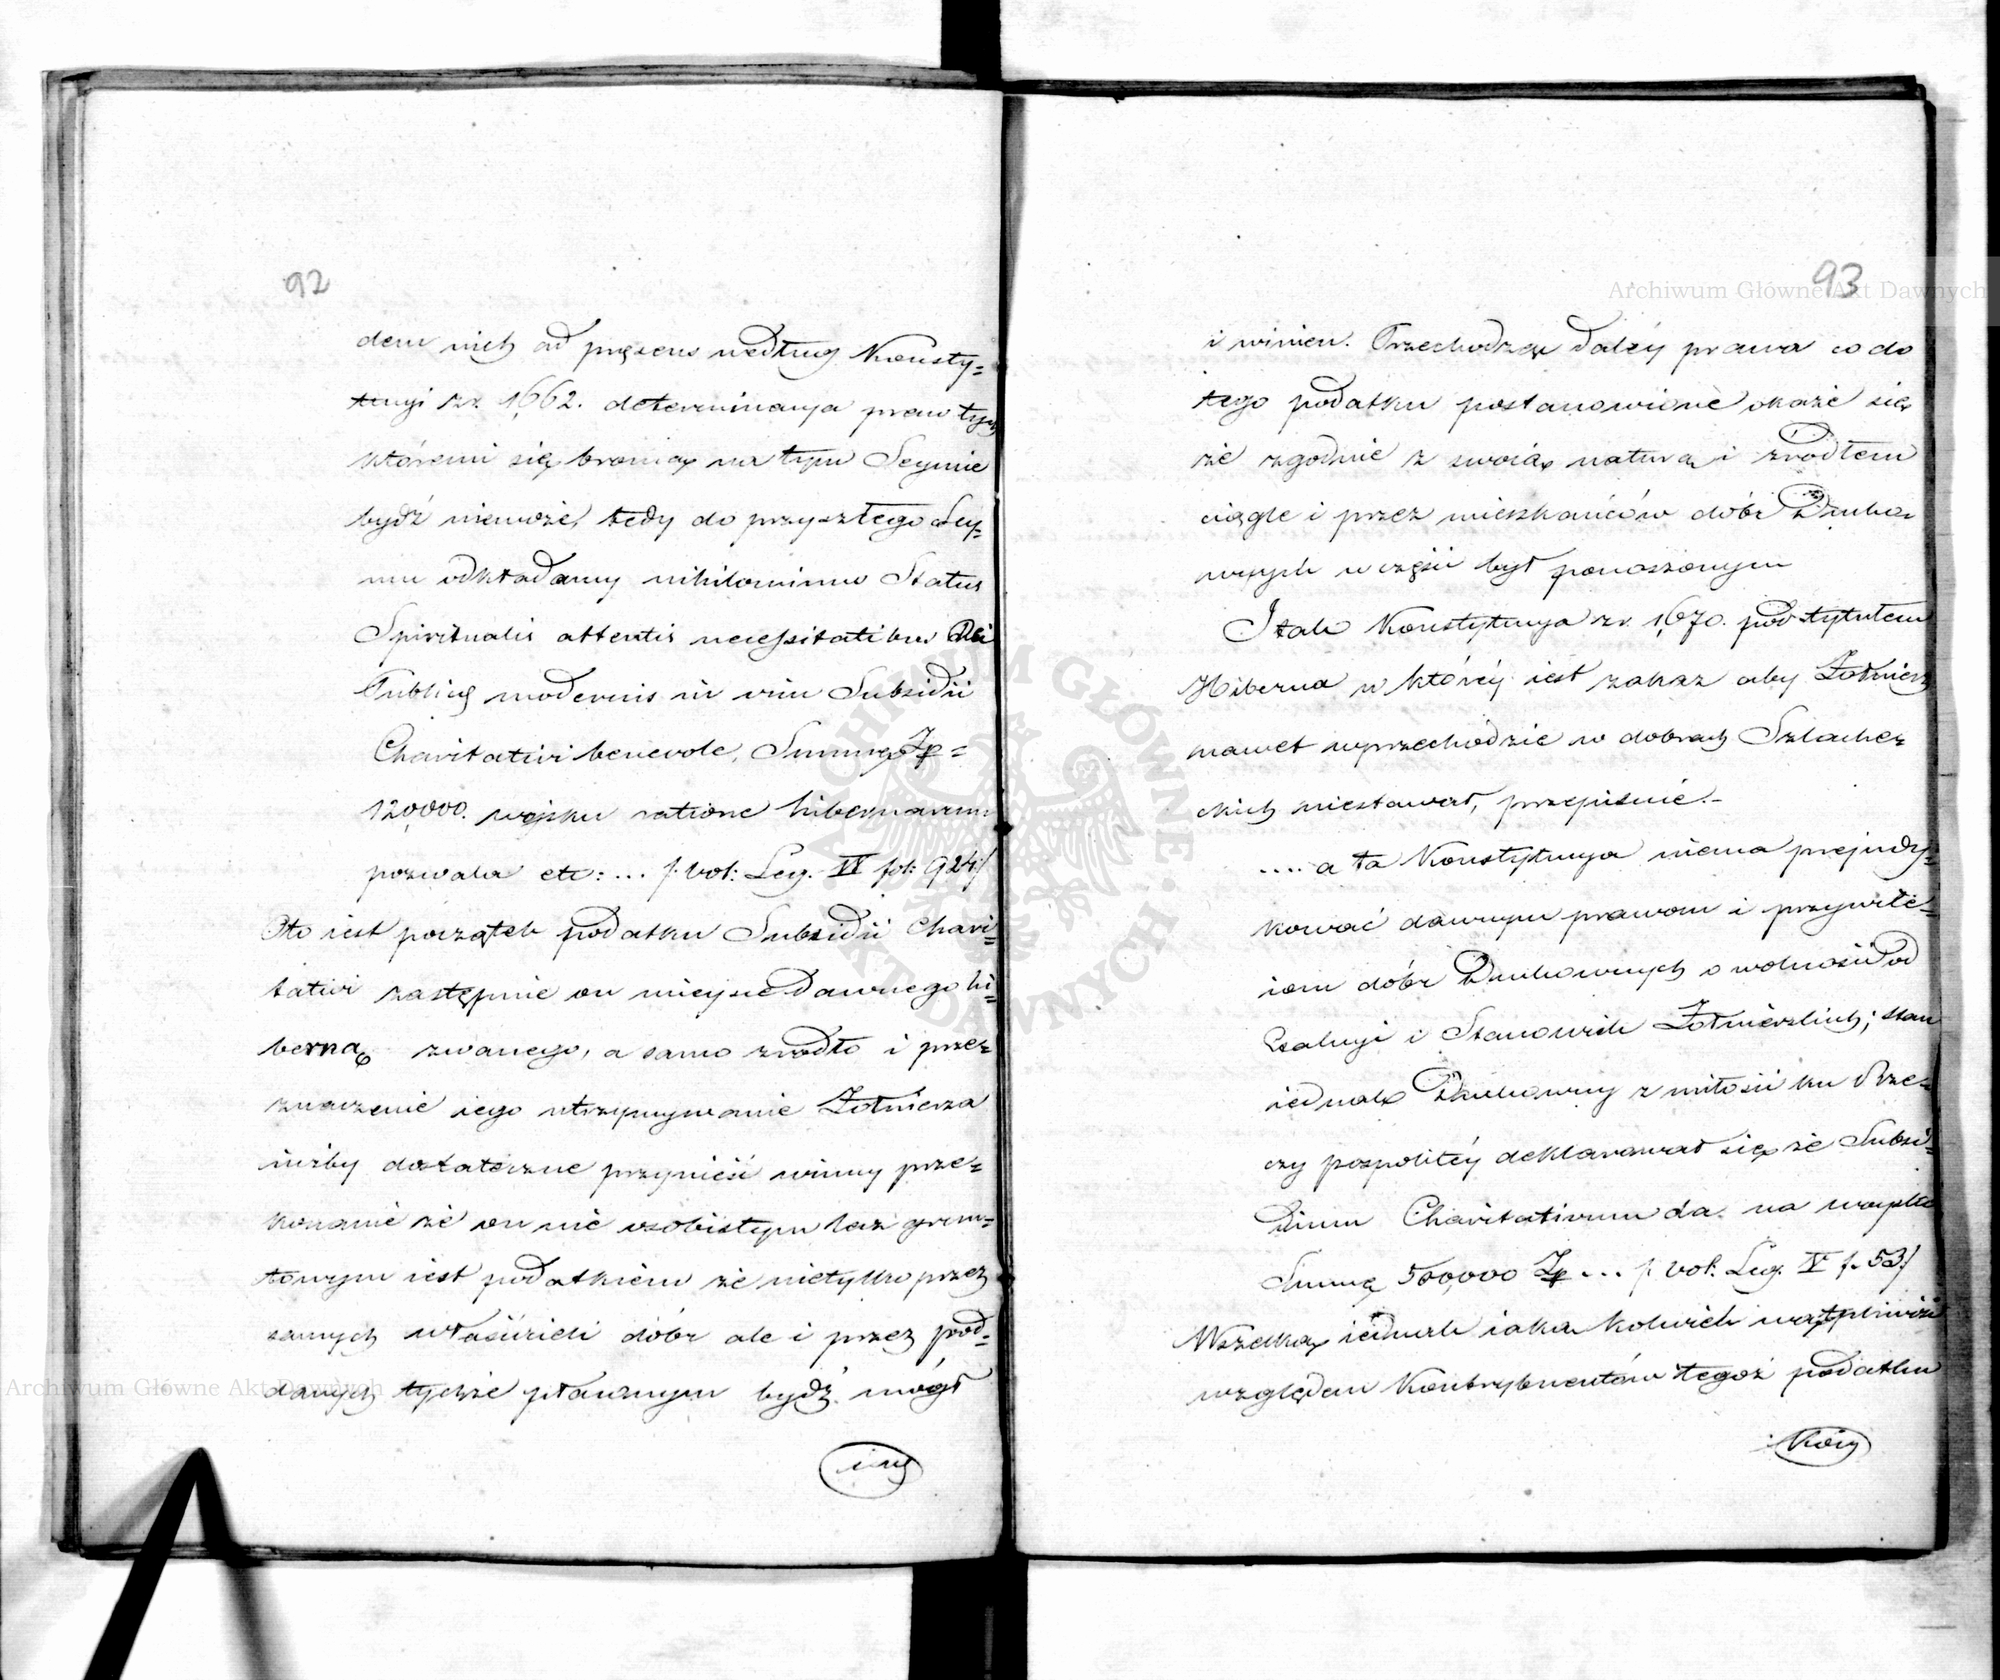 92
dem nich ad pręsens według Konsty=
tucyi z r. 1662. determinacya praw tych
któremi się bronią na tym Seymie
bydź niemoże, tedy do przyszłego Sey=
mu odkładamy nihilominus Status
Spiritualis attentis necessitatibus Rei
Publicę modernis in vim Subsidii
Charitativi benevole, Summę Zp=
120,000. wojsku ratione hibernarum
pozwala etc: ... /: vol: Leg. IV fol: 924:/
Oto iest początek podatku Subsidii Chari=
tativi zastępuie on mieysce dawnego hi=
berną zwanego, a samo zrodło i prze=
znaczenie iego utrzymywanie Żołnierza
iużby dostateczne przynieść winny prze=
konanie że on nie osobistym lecz grun=
towym iest podatkiem że nietylko przez
samych właścicieli dóbr ale i przez pod=
danych tychże płaconym bydź mógł
i wi
93
i winien. Przechodząc daléy prawa co do
tego podatku postanowione okaże się
że zgodnie z swoią naturą i źrodłem
ciągle i przez mieszkańców dóbr Ducho=
wnych w częśći był ponoszonym
I tak Konstytucya z r. 1670. pod tytułem
Hiberna w któréy iest zakaz aby Żołnierz
nawet w przechodzie w dobrach Szlachec
ckich niestawał, przepisuie.-
.... a ta Konstytucya niema prejudy=
kować dawnym prawom i przywile=
iom dóbr Duchownych o wolności od
Załugi i Stanowisk Żołnierskich; stan
iednak Duchowny z miłości ku Rze=
czy pospolitéy deklarował się że Subsi=
dium Charitativum da na woysko
Summę 500,000 Zp ... /: vol. Leg. V f. 53:/
Wszelką iednak iaką kolwiek wątpliwość
względem Kontrybuentów tegoż podatku
Archiwum Główne Akt Dawnych
Archiwum Główne Akt Dawnych
ARCHIWUM GŁÓWNE AKT DAWNYCH